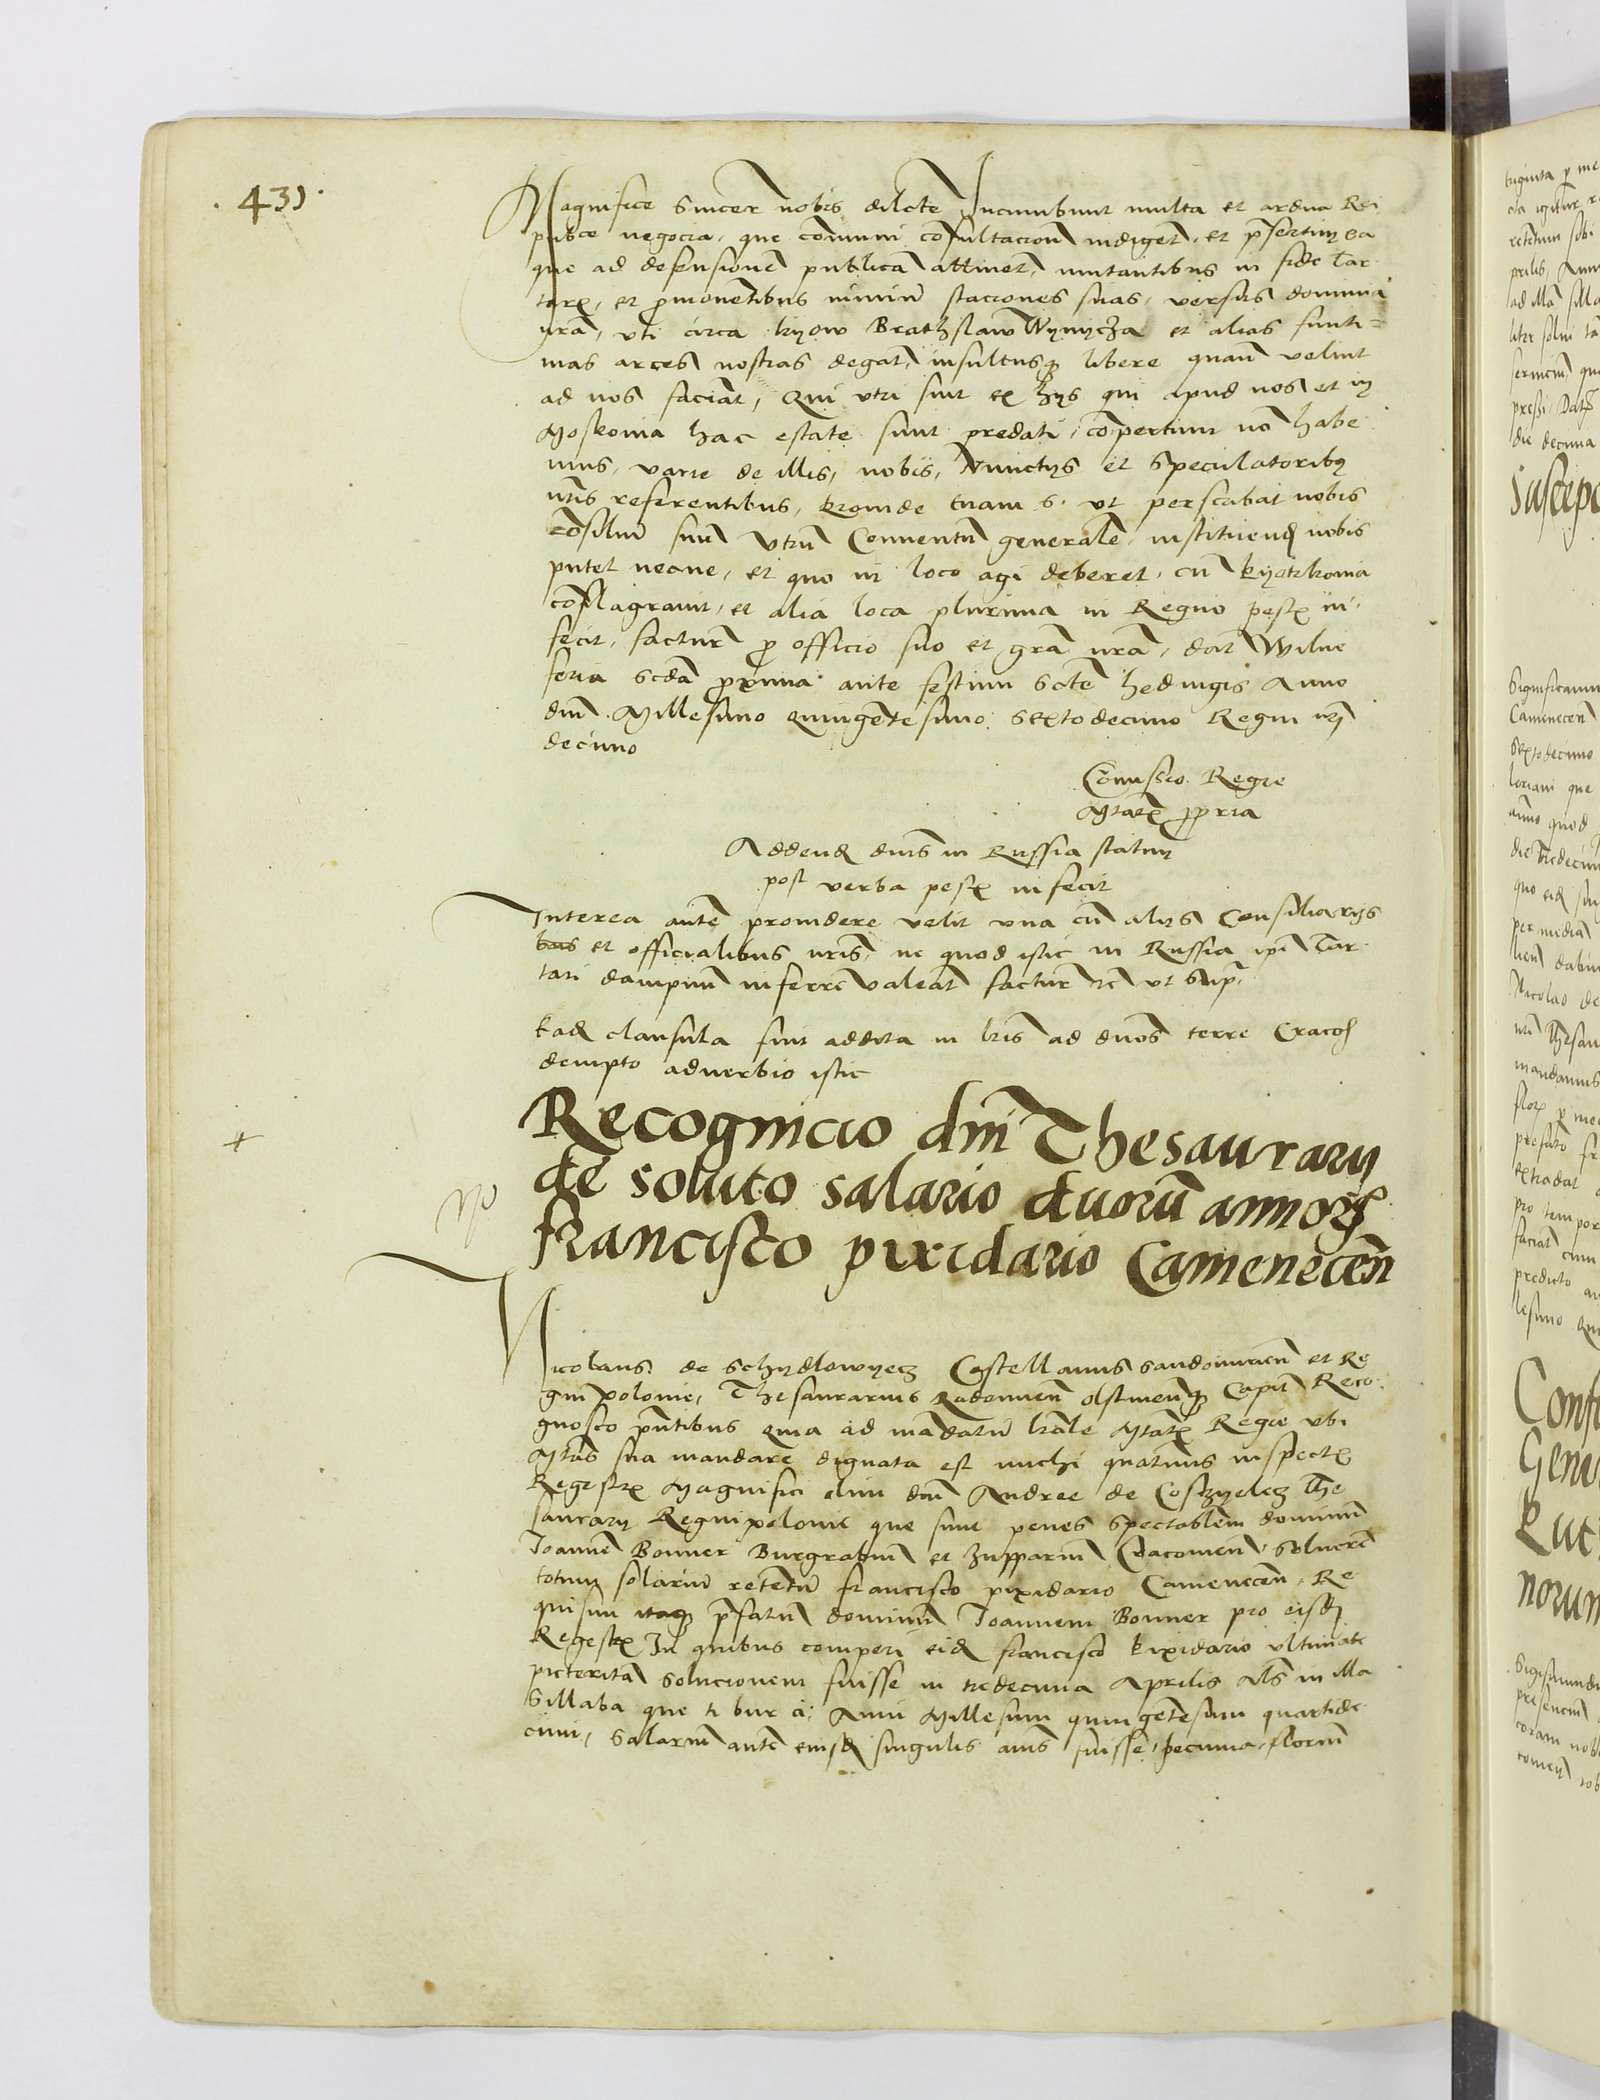 . 431 .
Magnifice sincere nobis dilecte Incumbunt multa et ardua Rei
pubce negocia, que comuni consultacione indigent, et presertim ea
que ad defensionem publicam attinent, nutantibus in fide Tar
taris, et promoventibus nimium staciones suas, versus dominia
nra, uti circa kyow Brathslaw Wynycza et alias finti=
mas arces nostras degant, insultusque libere quando velint
ad nos faciant, Qui utri sint ex hys qui apud nos et in
Moskovia hac estate sunt predati, compertum non habe
mus, varie de illis, nobis, Nunctys et speculatoribus
nris referentibus, proinde tuam s. ut perscribat nobis
consilium suum Utrum Conventum generalem instituend nobis
putet necne, et quo in loco agi deberet, cum pyotrkovia
conflagravit, et alia loca plurima in Regno pestis in
fecit, factur pro officio suo et gra nra, dat Wilne
feria scda proxima ante festum Scte hedvigis Anno
dni Millesimo quingentesimo sextodecimo Regni nri
decimo
Comissio Regie
Mtatis propria
Addend dnis in Russia statim
post verba pestis infecit
Interea autem providere velit una cum alys Consiliarys
et officialibus nris, ne quod istic in Russia ipi Tar
tari dampnum inferre valeant factur etc ut supra
Ead clausula fuit addita in lris ad dnos terre Cracov
dempto adverbio istic
+
Recognicio dni Thesaurary
de soluto salario duorum annorum
francisco pixidario Camenecen
Nicolaus de Schydlowyecz Castellanus Sandomirien et Re
gni polonie, Thesaurarius Radomien Olstinenque Capit Reco
gnosco pntibus quia ad mandatum lrale Mtatis Regie ubi
Mtas sua mandare dignata est michi quatinus inspectis
Regestris Magnifici olim dni Andree de Coszyelecz The
saurary Regni polonie que sunt penes spectabilem dominum
Joannem Bonner Burgrabium et Zupparium Cracovien, solverem
totum solarium retentum francisco pixidario Camenecen, Re
quisivi itaque prefatum dominum Joannem Bonner pro eisdem
Regestris In quibus comperi eid francisco pixidario ultimate
preteritam solucionem fuisse in tredecima Aprilis als in illa
Sillaba que ti bur ci, Anni Millesimi quingentesimi quartide
cimi, Salarium autem eiusd singulis annis fuisse, pecunia, floren